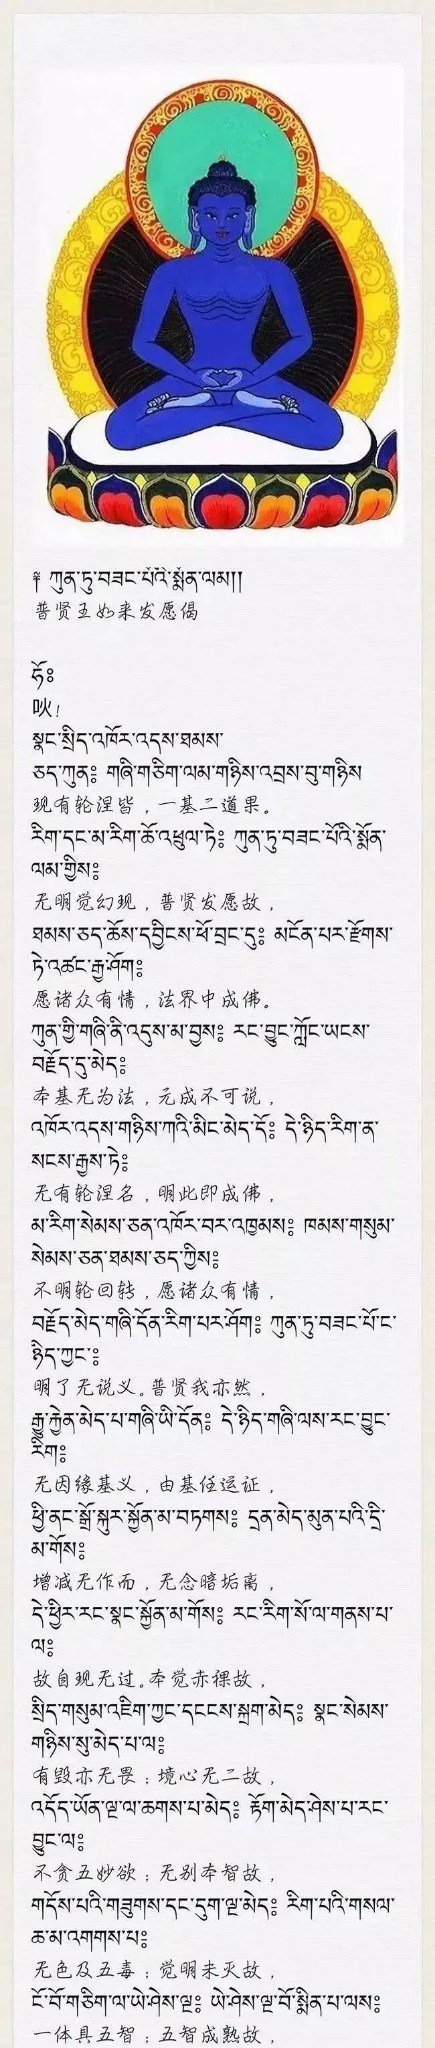 ༈ ཀུན་ཏུ་བཟང་པོའི་སྨོན་ལམ།།
普贤王如来发愿偈
ཧོཿ
吙！
སྣང་སྲིད་འཁོར་འདས་ཐམས་
ཅད་ཀུན༔ གཞི་གཅིག་ལམ་གཉིས་འབྲས་བུ་གཉིས
现有轮涅皆，一基二道果。
རིག་དང་མ་རིག་ཆོ་འཕྲུལ་ཏེ༔ ཀུན་ཏུ་བཟང་པོའི་སྨོན་
ལམ་གྱིས༔
无明觉幻现，普贤发愿故，
ཐམས་ཅད་ཆོས་དབྱིངས་ཕོ་བྲང་དུ༔ མངོན་པར་རྫོགས་
ཏེ་འཚང་རྒྱ་ཤོག༔
愿诸众有情，法界中成佛。
ཀུན་གྱི་གཞི་ནི་འདུས་མ་བྱས༔ རང་བྱུང་ཀློང་ཡངས་
བརྗོད་དུ་མེད༔
本基无为法，元成不可说，
འཁོར་འདས་གཉིས་ཀའི་མིང་མེད་དོ༔ དེ་ཉིད་རིག་ན་
སངས་རྒྱས་ཏེ༔
无有轮涅名，明此即成佛，
མ་རིག་སེམས་ཅན་འཁོར་བར་འཁྱམས༔ ཁམས་གསུམ་
སེམས་ཅན་ཐམས་ཅད་ཀྱིས༔
不明轮回转，愿诸众有情，
བརྗོད་མེད་གཞི་དོན་རིག་པར་ཤོག༔ ཀུན་ཏུ་བཟང་པོ་ང་
ཉིད་ཀྱང་༔
明了无说义。普贤我亦然，
རྒྱུ་རྐྱེན་མེད་པ་གཞི་ཡི་དོན༔ དེ་ཉིད་གཞི་ལས་རང་བྱུང་
རིག༔
无因缘基义，由基任运证，
ཕྱི་ནང་སྒྲོ་སྐུར་སྐྱོན་མ་བཏགས༔ དྲན་མེད་མུན་པའི་དྲི་
མ་གོས༔
增减无作而，无念暗垢离，
དེ་ཕྱིར་རང་སྣང་སྐྱོན་མ་གོས༔ རང་རིག་སོ་ལ་གནས་པ་
ལ༔
故自现无过。本觉赤裸故，
སྲིད་གསུམ་འཇིག་ཀྱང་དངངས་སྐྲག་མེད༔ སྣང་སེམས་
གཉིས་སུ་མེད་པ་ལ༔
有毁亦无畏；境心无二故，
འདོད་ཡོན་ལྔ་ལ་ཆགས་པ་མེད༔ རྟོག་མེད་ཤེས་པ་རང་
བྱུང་ལ༔
不贪五妙欲；无别本智故，
གདོས་པའི་གཟུགས་དང་དུག་ལྔ་མེད༔ རིག་པའི་གསལ་
ཆ་མ་འགགས་པ༔
无色及五毒；觉明未灭故，
ངོ་བོ་གཅིག་ལ་ཡེ་ཤེས་ལྔ༔ ཡེ་ཤེས་ལྔ་བོ་སྨིན་པ་ལས༔
一体具五智；五智成熟故，